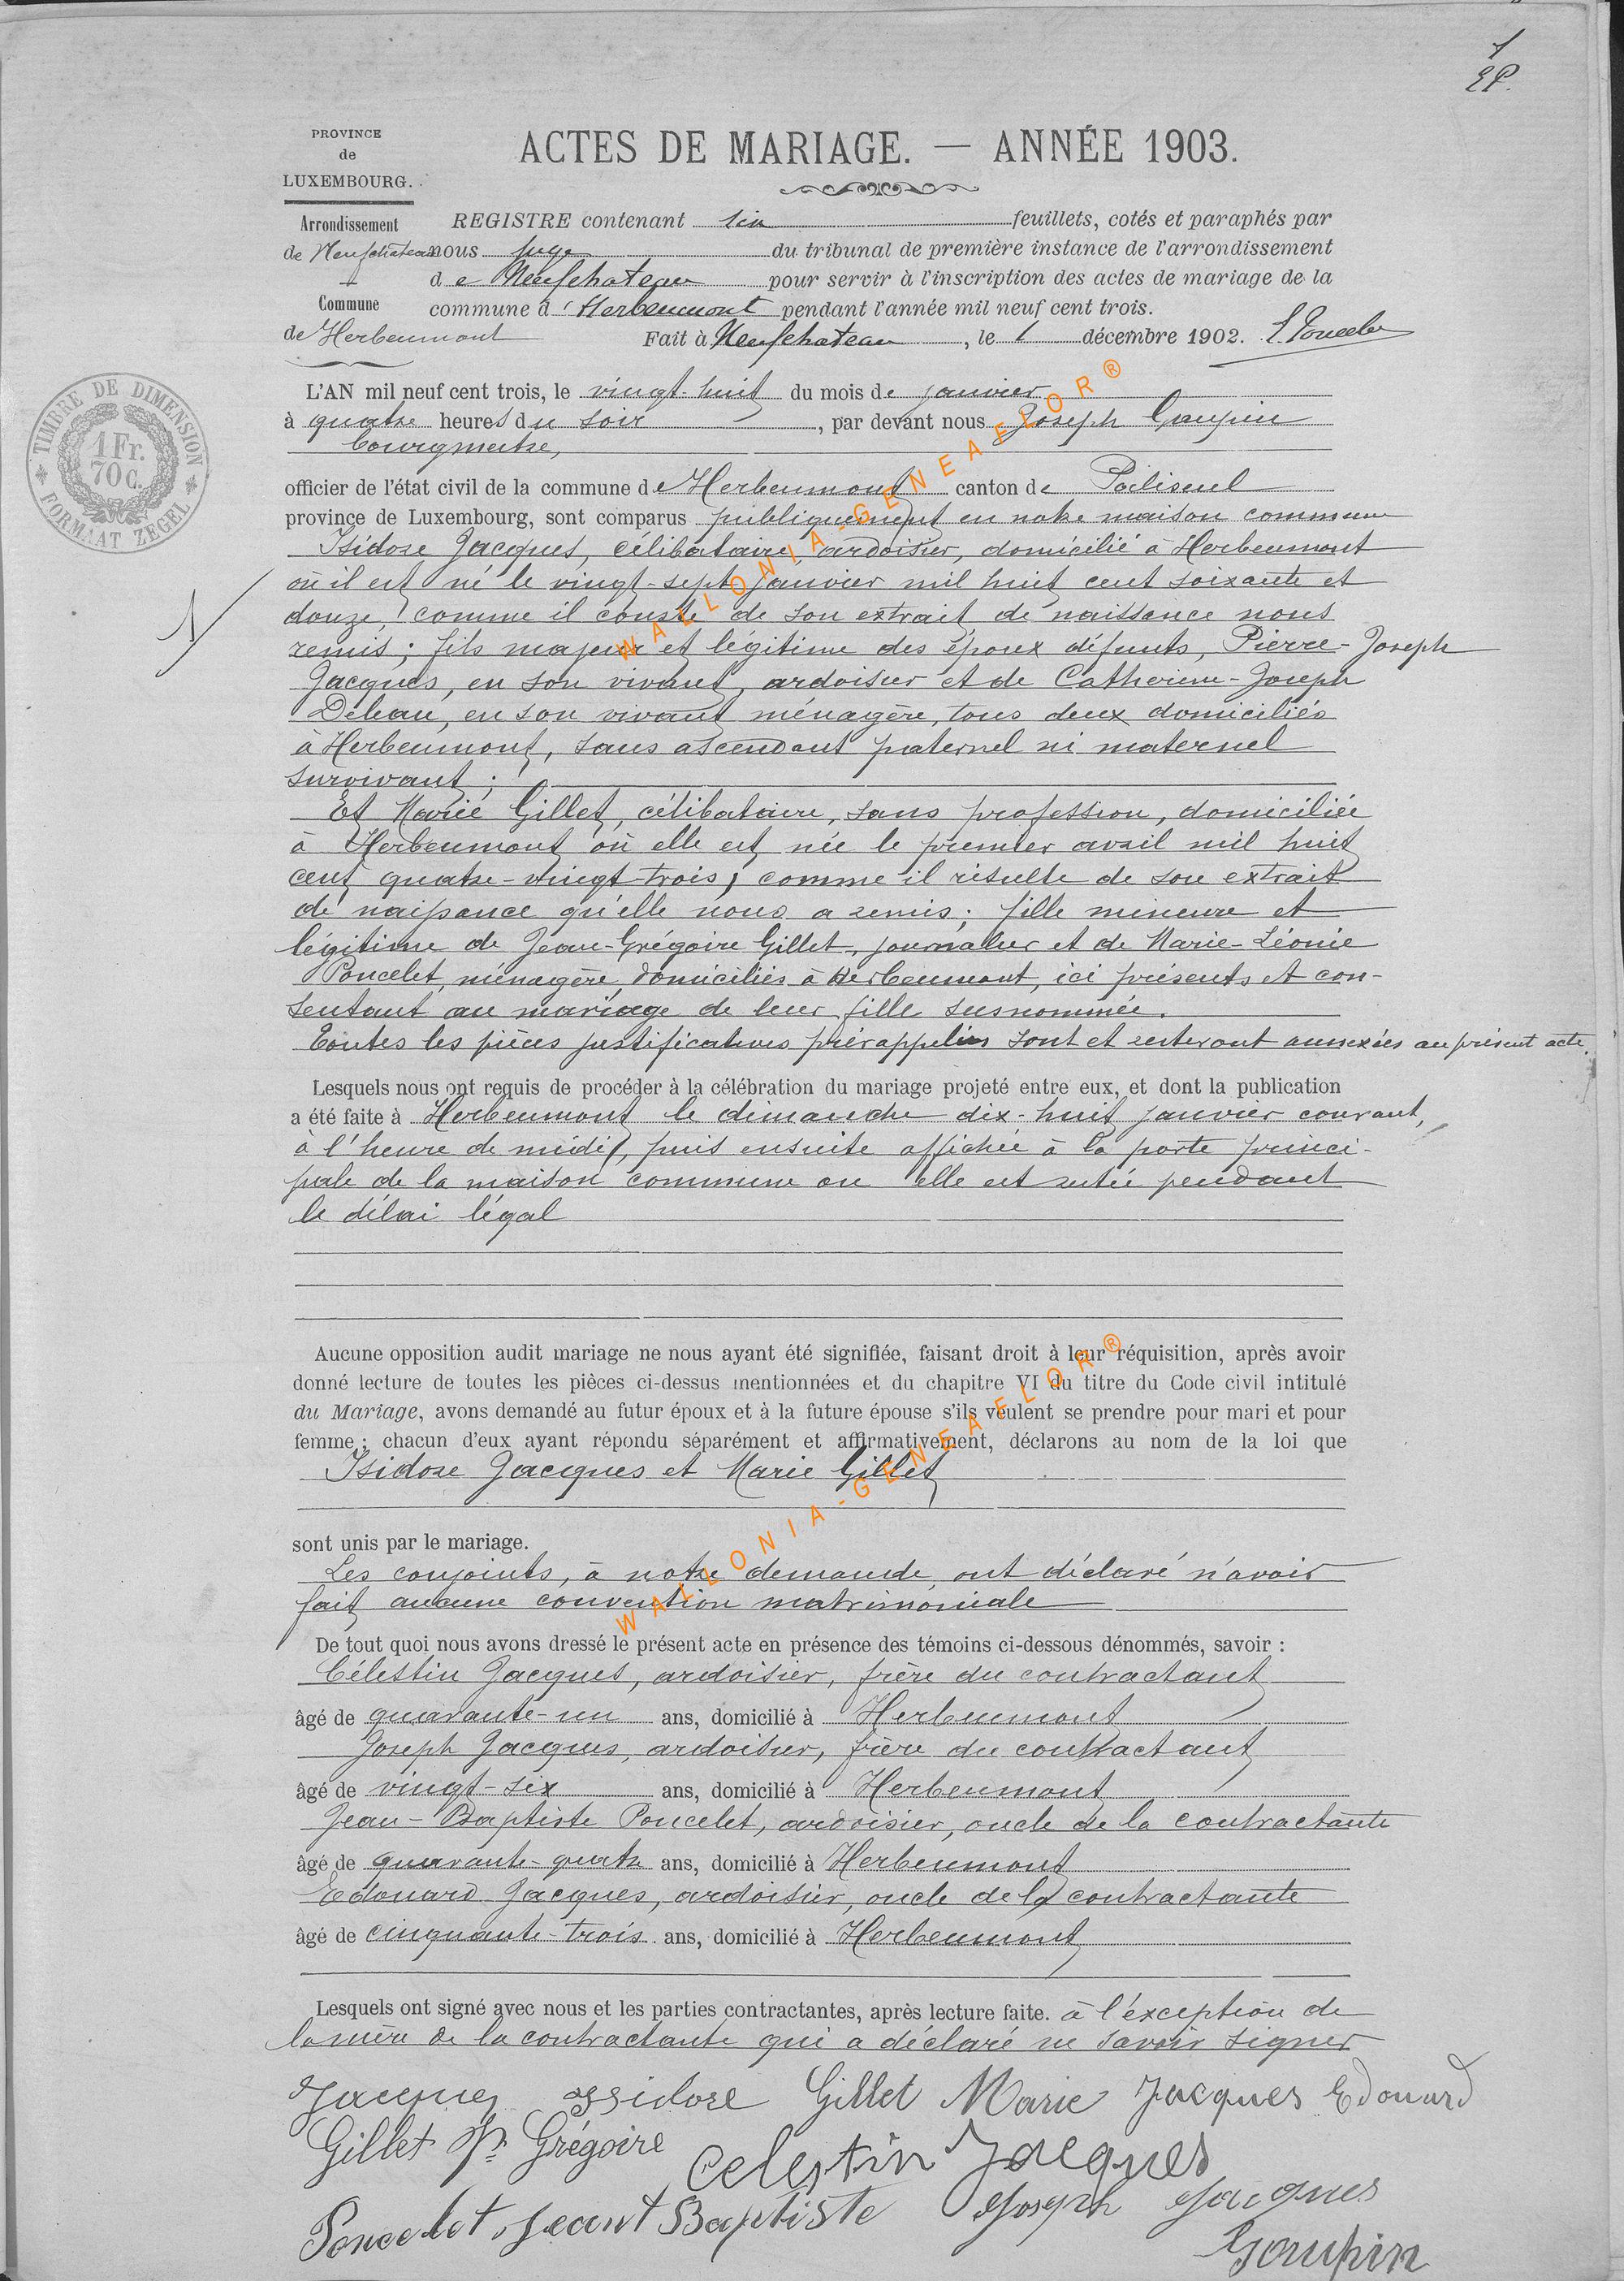 1
EP.
PROVINCE
de
LUXEMBOURG.
ACTES DE MARIAGE. — ANNÉE 1903.
Arrondissement
de Neufchateau
Commune
de Herbeumont
REGISTRE contenant six feuillets, cotés et paraphés par
nous juge du tribunal de première instance de l'arrondissement
de Neufchateau pour servir à l'inscription des actes de mariage de la
commune d'Herbeumont pendant l'année mil neuf cent trois.
Fait à Neufchateau, le 1 décembre 1902.
TIMBRE DE DIMENSION
1 Fr.
70 C.
FORMAAT ZEGEL
L'AN mil neuf cent trois, le vingt-huit du mois de janvier
à quatre heures du soir, par devant nous Joseph Goupin
bourgmestre,
officier de l'état civil de la commune de Herbeumont canton de Paliseul
province de Luxembourg, sont comparus publiquement en notre maison commune
Isidore Jacques, célibataire, ardoisier, domicilié à Herbeumont
où il est né le vingt-sept janvier mil huit cent soixante et
douze, comme il conste de son extrait de naissance nous
remis ; fils majeur et légitime des époux défunts, Pierre-Joseph
Jacques, en son vivant, ardoisier et de Catherine-Joseph
en son vivant ménagère, tous deux domiciliés
à Herbeumont, sans ascendant paternel ni maternel
survivant ;
Et Marie Gillet, célibataire, sans profession, domiciliée
à Herbeumont où elle est née le premier avril mil huit
cent quatre-vingt-trois, comme il résulte de son extrait
de naissance qu'elle nous a remis ; fille mineure et
légitime de Jean-Grégoire Gillet, journalier et de Marie-Léonie
Poncelet, ménagère, domiciliés à Herbeumont, ici présents et con-
sentant au mariage de leur fille susnommée.
Toutes les pièces justificatives prérappelées sont et resteront annexées au présent acte.
Lesquels nous ont requis de procéder à la célébration du mariage projeté entre eux, et dont la publication
a été faite à Herbeumont le dimanche dix-huit janvier courant,
à l'heure de midi, puis ensuite affichée à la porte princi-
pale de la maison commune ou elle est restée pendant
le délai légal
Aucune opposition audit mariage ne nous ayant été signifiée, faisant droit à leur réquisition, après avoir
donné lecture de toutes les pièces ci-dessus mentionnées et du chapitre VI du titre du Code civil intitulé
du Mariage, avons demandé au futur époux et à la future épouse s'ils veulent se prendre pour mari et pour
femme ; chacun d'eux ayant répondu séparément et affirmativement, déclarons au nom de la loi que
Isidore Jacques et Marie Gillet
sont unis par le mariage.
Les conjoints, à notre demande, ont déclaré n'avoir
fait aucune convention matrimoniale
De tout quoi nous avons dressé le présent acte en présence des témoins ci-dessous dénommés, savoir :
Célestin Jacques, ardoisier, frère du contractant
âgé de quarante-un ans, domicilié à Herbeumont
Joseph Jacques, ardoisier, frère du contractant
âgé de vingt-six ans, domicilié à Herbeumont
Jean-Baptiste Poncelet, ardoisier, oncle de la contractante
âgé de quarante-quatre ans, domicilié à Herbeumont
Edouard Jacques, ardoisier, oncle de la contractante
âgé de cinquante-trois ans, domicilié à Herbeumont
Lesquels ont signé avec nous et les parties contractantes, après lecture faite. à l'exception de
la mère de la contractante qui a déclaré ne savoir signer
Jacques Isidore Gillet Marie Jacques Edouard
Gillet Jn Grégoire Celestin Jacques
Poncelet Jeant Baptiste Joseph Jacques
Goupin
WALLONIA-GENEAELOR®
WALLONIA-GENEAELOR®